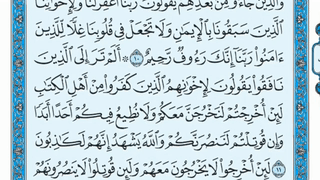 وَٱلَّذِينَ جَآءُو مِنۢ بَعۡدِهِمۡ يَقُولُونَ رَبَّنَا ٱغۡفِرۡ لَنَا وَلِإِخۡوَٰنِنَا
ٱلَّذِينَ سَبَقُونَا بِٱلۡإِيمَٰنِ وَلَا تَجۡعَلۡ فِي قُلُوبِنَا غِلّٗا لِّلَّذِينَ
ءَامَنُواْ رَبَّنَآ إِنَّكَ رَءُوفٞ رَّحِيمٌ ١٠ ۞ أَلَمۡ تَرَ إِلَى ٱلَّذِينَ
نَافَقُواْ يَقُولُونَ لِإِخۡوَٰنِهِمُ ٱلَّذِينَ كَفَرُواْ مِنۡ أَهۡلِ ٱلۡكِتَٰبِ
لَئِنۡ أُخۡرِجۡتُمۡ لَنَخۡرُجَنَّ مَعَكُمۡ وَلَا نُطِيعُ فِيكُمۡ أَحَدًا أَبَدٗا
وَإِن قُوتِلۡتُمۡ لَنَنصُرَنَّكُمۡ وَٱللَّهُ يَشۡهَدُ إِنَّهُمۡ لَكَٰذِبُونَ
١١ لَئِنۡ أُخۡرِجُواْ لَا يَخۡرُجُونَ مَعَهُمۡ وَلَئِن قُوتِلُواْ لَا يَنصُرُونَهُمۡ